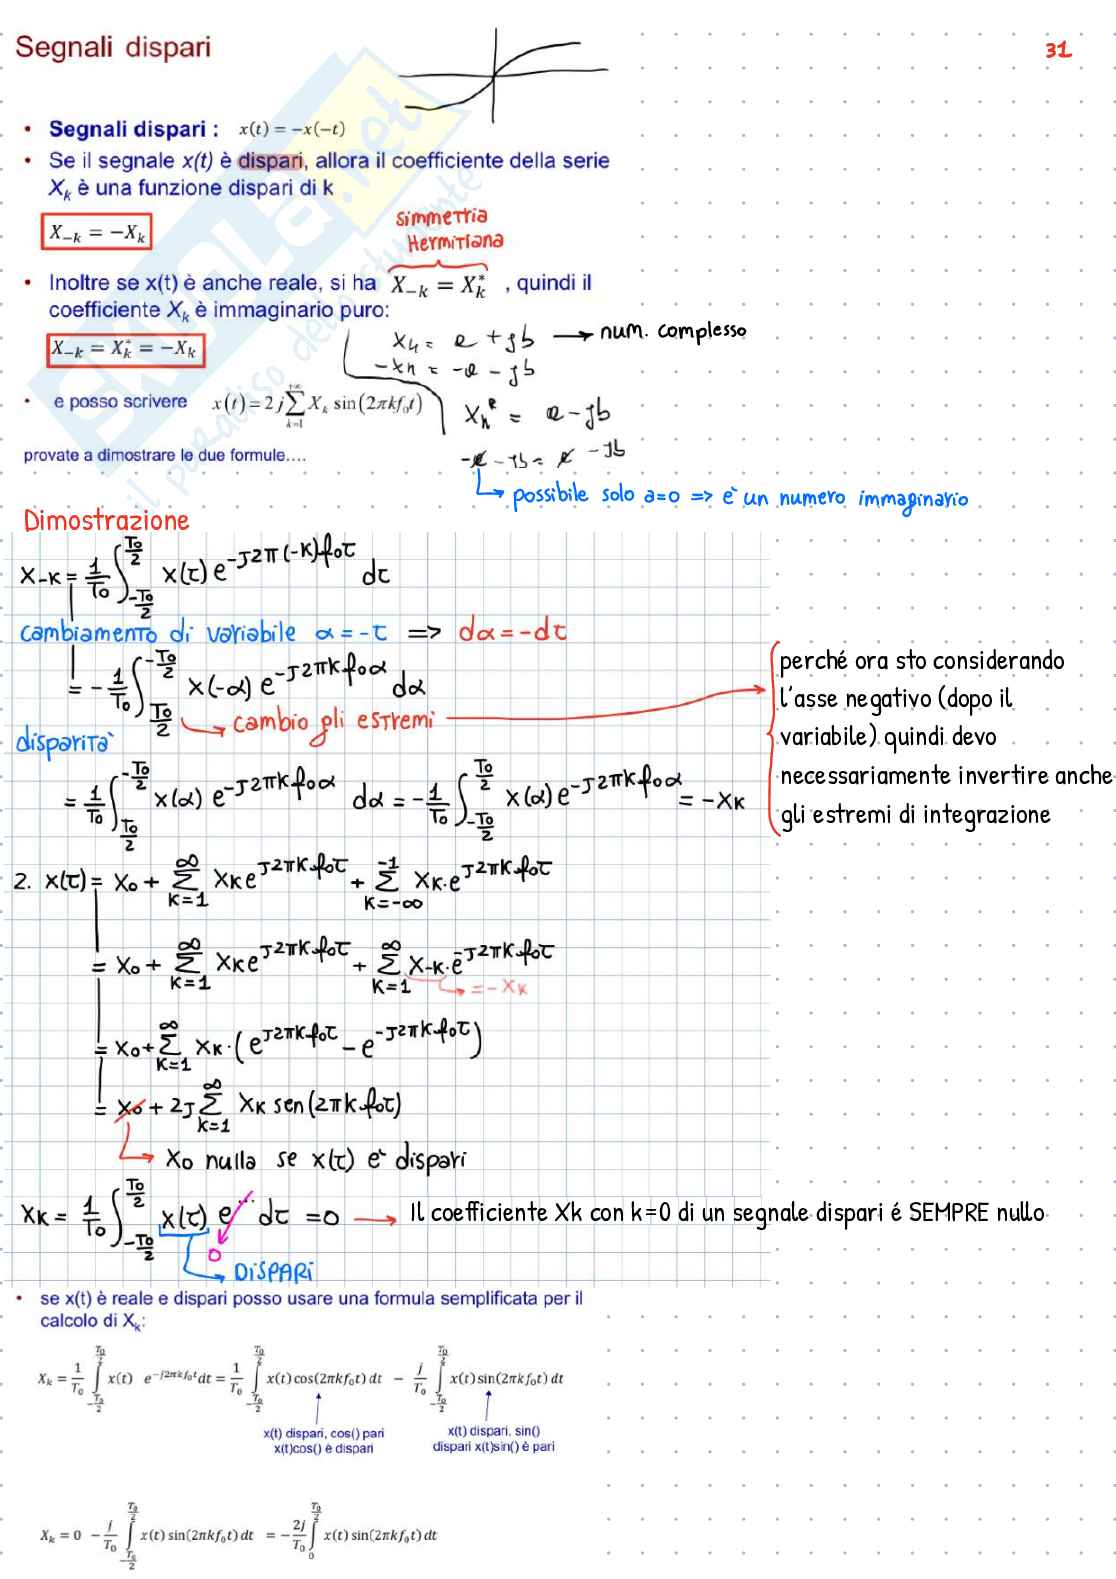 Segnali dispari
31
• Segnali dispari : x(t) = −x(−t)
• Se il segnale x(t) è dispari, allora il coefficiente della serie
X_k è una funzione dispari di k
X_{−k} = −X_k
simmetria
Hermitiana
• Inoltre se x(t) è anche reale, si ha X_{−k} = X_k^* , quindi il
coefficiente X_k è immaginario puro:
X_{−k} = X_k^* = −X_k
X_k = a + jb → num. complesso
−X_k = −a − jb
• e posso scrivere x(t) = 2j ∑_{k=1}^{+∞} X_k sin(2πkf_0t)
X_k^* = a − jb
−a − jb = a − jb
provate a dimostrare le due formule....
possibile solo a=0 => è un numero immaginario
Dimostrazione
X_{−K} = 1/T0 ∫_{−T0/2}^{T0/2} x(τ) e^{−J2π(−K)f0τ} dτ
cambiamento di variabile α = −τ => dα = −dτ
= − 1/T0 ∫_{T0/2}^{−T0/2} x(−α) e^{−J2πKf0α} dα
cambio gli estremi
perché ora sto considerando
l'asse negativo (dopo il
variabile) quindi devo
necessariamente invertire anche
gli estremi di integrazione
disparità
= 1/T0 ∫_{T0/2}^{−T0/2} x(α) e^{−J2πKf0α} dα = − 1/T0 ∫_{−T0/2}^{T0/2} x(α) e^{−J2πKf0α} = −XK
2. x(τ) = X0 + ∑_{K=1}^{∞} XK e^{J2πKf0τ} + ∑_{K=−∞}^{−1} XK · e^{J2πKf0τ}
= X0 + ∑_{K=1}^{∞} XK e^{J2πKf0τ} + ∑_{K=1}^{∞} X−K · e^{−J2πKf0τ}
= −XK
= X0 + ∑_{K=1}^{∞} XK · (e^{J2πKf0τ} − e^{−J2πKf0τ})
= X0 + 2J ∑_{K=1}^{∞} XK sen(2πKf0τ)
X0 nulla se x(τ) è dispari
XK = 1/T0 ∫_{−T0/2}^{T0/2} x(τ) e^{...} dτ = 0 → Il coefficiente Xk con k=0 di un segnale dispari é SEMPRE nullo
0
DISPARI
• se x(t) è reale e dispari posso usare una formula semplificata per il
calcolo di X_k:
X_k = 1/T_0 ∫_{−T_0/2}^{T_0/2} x(t) e^{−j2πkf_0t} dt = 1/T_0 ∫_{−T_0/2}^{T_0/2} x(t) cos(2πkf_0t) dt − j/T_0 ∫_{−T_0/2}^{T_0/2} x(t) sin(2πkf_0t) dt
x(t) dispari, cos() pari
x(t)cos() è dispari
x(t) dispari, sin()
dispari x(t)sin() è pari
X_k = 0 − j/T_0 ∫_{−T_0/2}^{T_0/2} x(t) sin(2πkf_0t) dt = − 2j/T_0 ∫_0^{T_0/2} x(t) sin(2πkf_0t) dt
SKUOLA.net
il paradiso dello studente